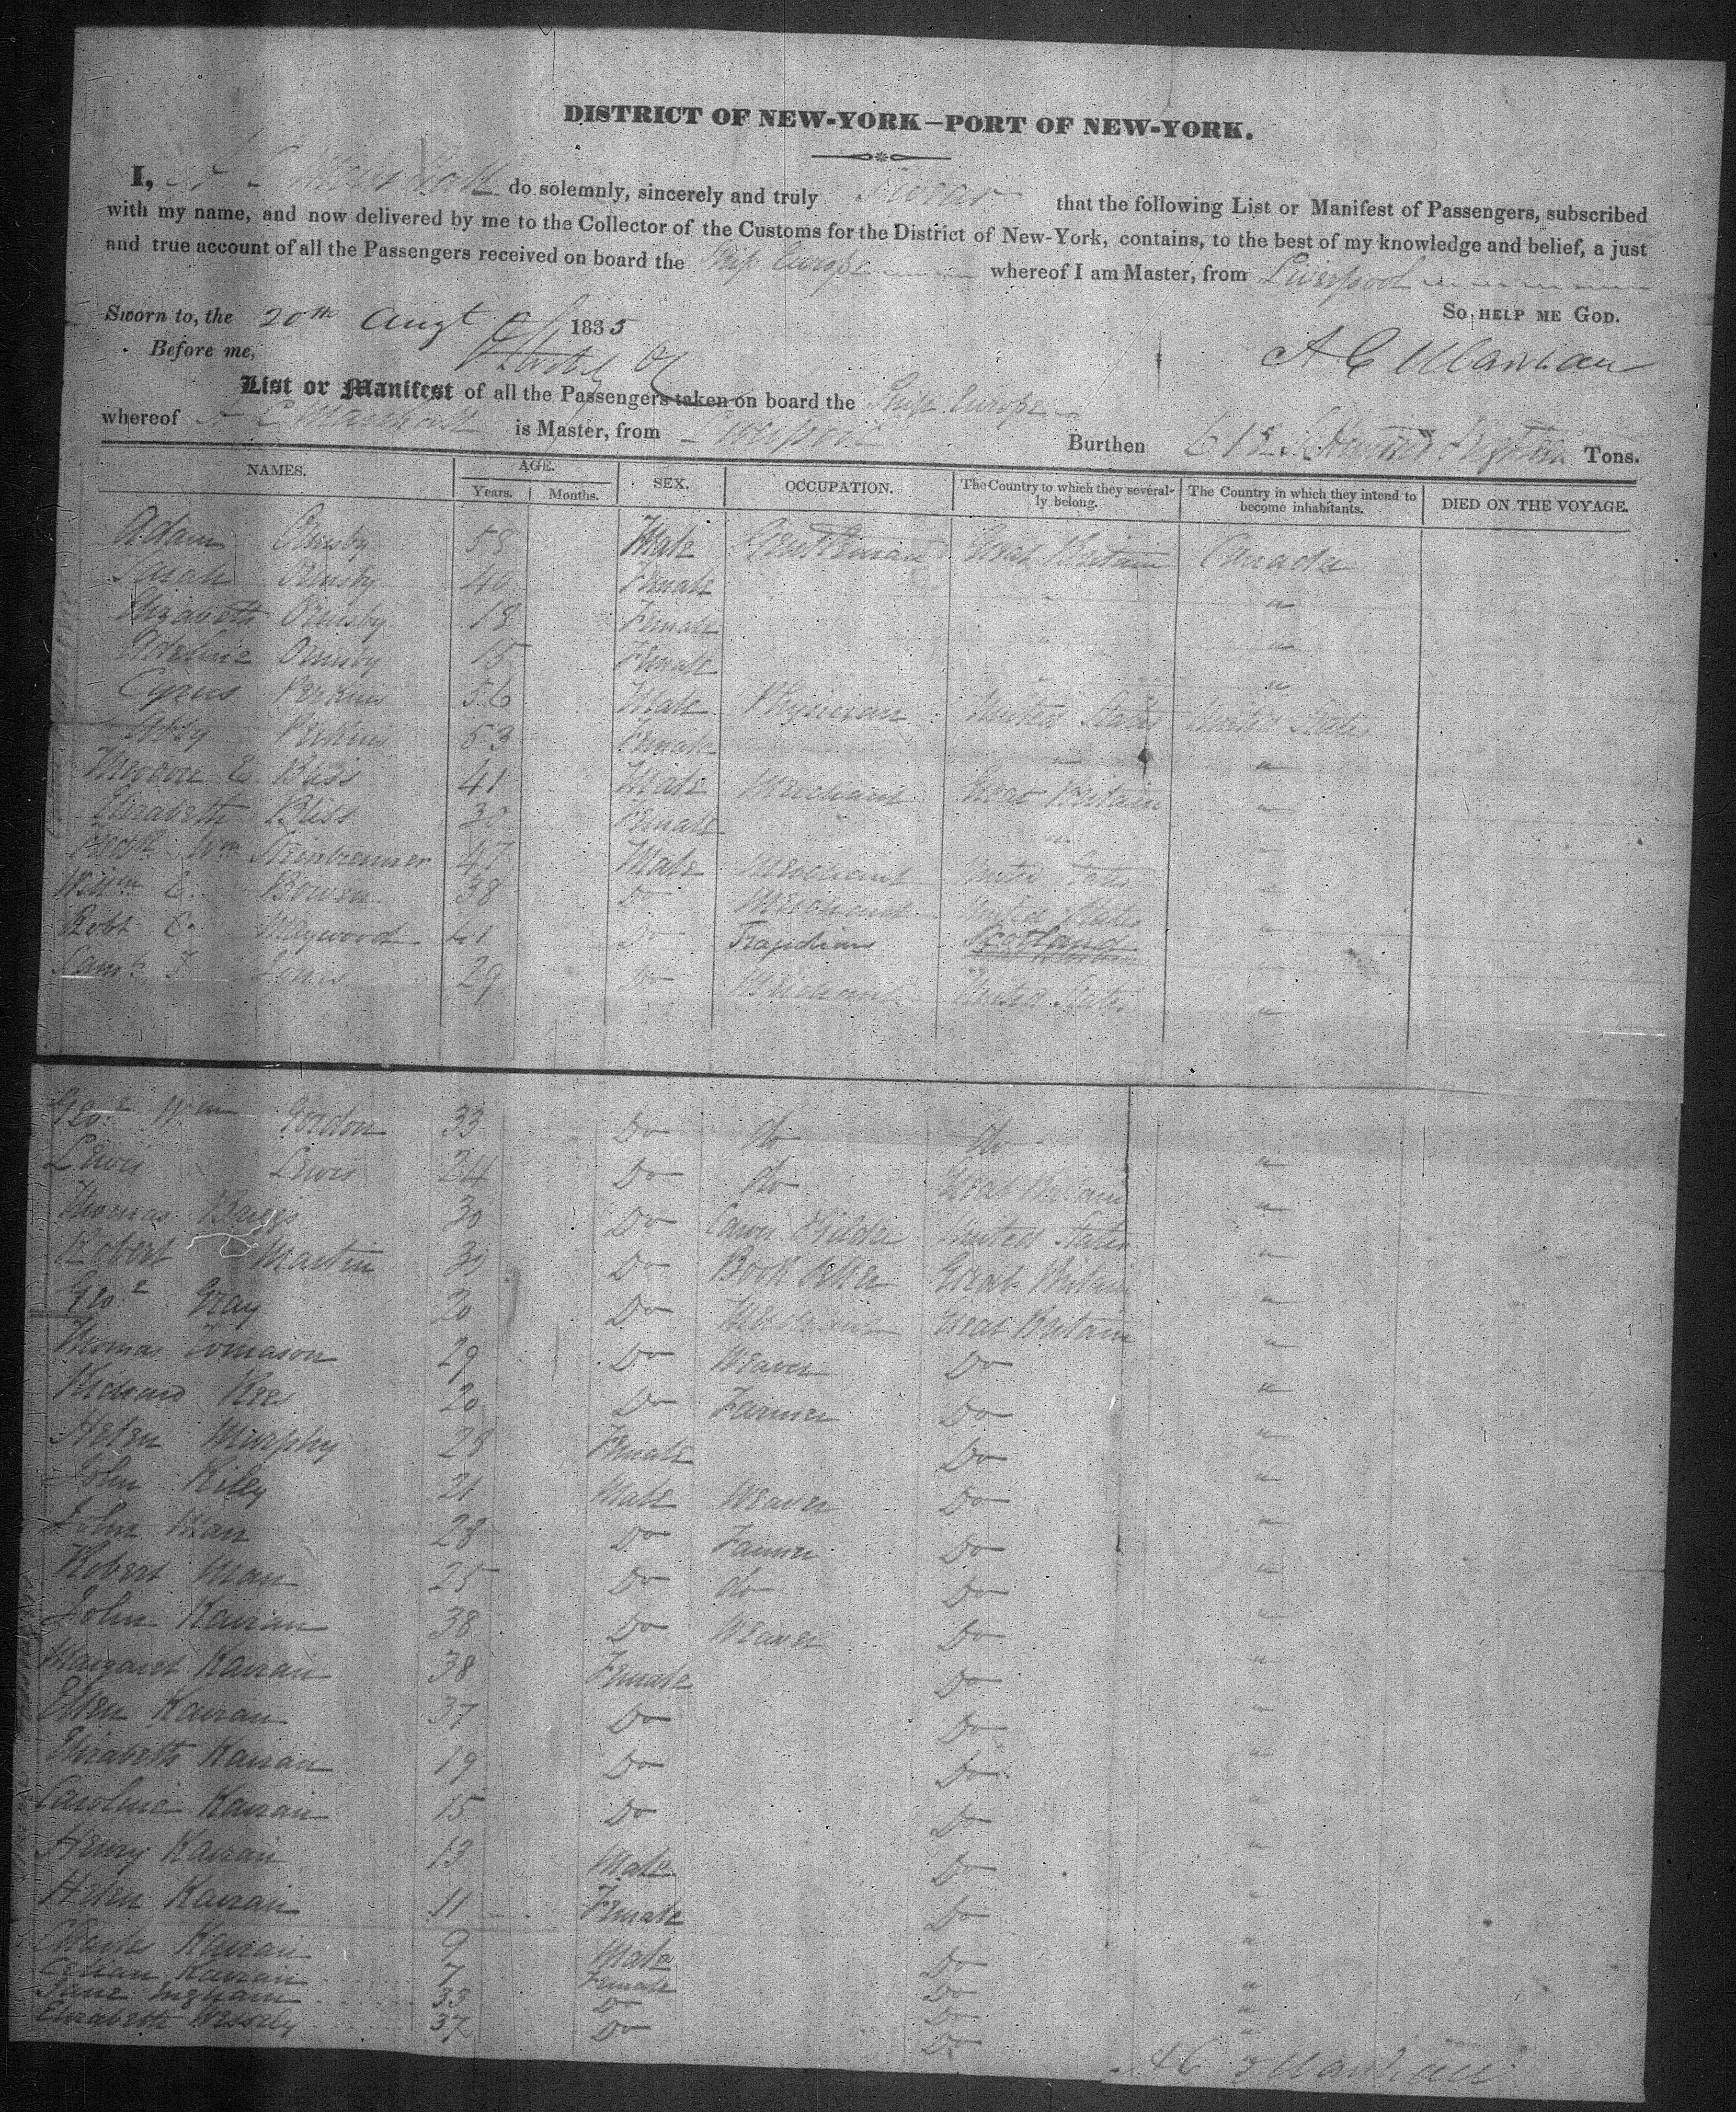 DISTRICT OF NEW-YORK—PORT OF NEW-YORK.
I, A C Marshall do solemnly, sincerely and truly Swear that the following List or Manifest of Passengers, subscribed
with my name, and now delivered by me to the Collector of the Customs for the District of New-York, contains, to the best of my knowledge and belief, a just
and true account of all the Passengers received on board the Ship Europe whereof I am Master, from Liverpool
So HELP ME GOD.
Sworn to, the 20th Augt 1835
Before me, A C Marshall
List or Manifest of all the Passengers taken on board the Ship Europe
whereof A C Marshall is Master, from Liverpool Burthen 618 Tons.
NAMES. AGE. Years. Months. SEX. OCCUPATION. The Country to which they several-ly belong. The Country in which they intend to become inhabitants. DIED ON THE VOYAGE.
Adam Ormsby 58 Male Gentleman Great Britain Canada
Sarah Ormsby 40 Female "
Elizabeth Ormsby 18 Female "
Adeline Ormsby 15 Female "
Cyrus Perkins 56 Male Physician United States United States
Abby Perkins 53 Female "
Theodore E Bliss 41 Male Merchant Great Britain "
Elizabeth Bliss 30 Female " "
Fredk Wm Steinbrenner 47 Male Merchant United States "
Willm C. Bowen 38 Do Merchant United States "
Robt C. Maywood 41 Do Tragedian Scotland "
Saml T. 29 Do Merchant United States "
Geoe Wm Gordon 33 Do do do "
Lewis Lewis 24 Do do Great Britain "
Thomas Baggs 30 Do United States "
Robert Martin 30 Do Book seller Great Britain "
Geoe Gray 20 Do Merchant Great Britain "
Thomas Tomason 29 Do Weaver Do "
Richard Rees 20 Do Farmer Do "
Helen Murphy 28 Female Do "
John Kiley 21 Male Weaver Do "
John Man 28 Do Farmer Do "
Robert Man 25 Do do Do "
John Kairan 38 Do Weaver Do "
Margaret Kairan 38 Female Do "
Ellen Kairan 37 Do Do "
Elizabeth Kairan 19 Do Do "
Caroline Kairan 15 Do Do "
Henry Kairan 13 Male Do "
Helen Kairan 11 Female Do "
Charles Kairan 9 Male Do "
Kairan 7 Female Do "
Jane Ingham 33 Do Do "
Elizabeth Wessely 37 Do Do "
A C Marshall